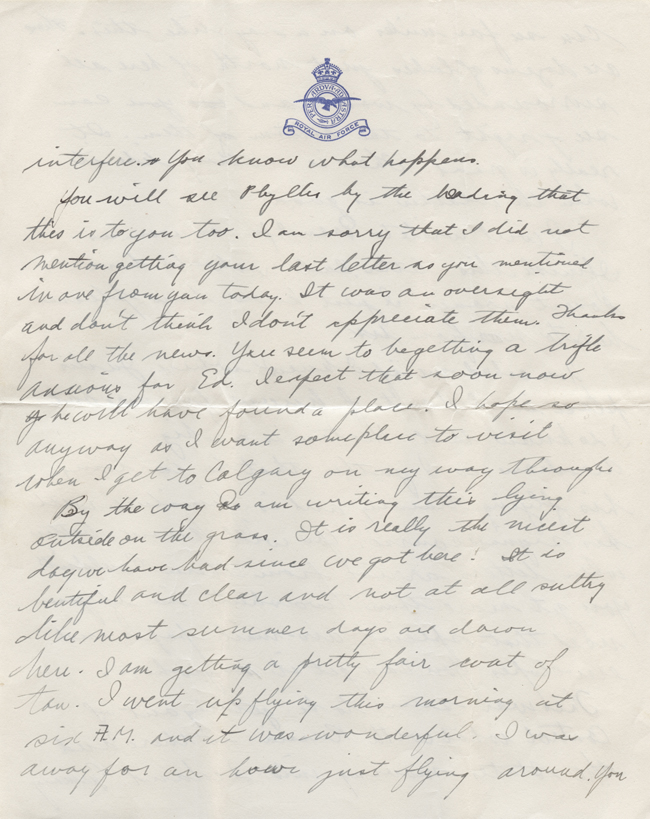 PER ARDUA AD ASTRA
ROYAL AIR FORCE
interfere. You know what happens.
You will see Phyllis by the heading that
this is to you too. I am sorry that I did not
mention getting your last letter as you mentioned
in one from you today. It was an oversight
and don't think I don't appreciate them. Thanks
for all the news. You seem to be getting a trifle
anxious for Ed. I expect that soon now
he will have found a place. I hope so
anyway as I want someplace to visit
when I get to Calgary on my way through.
By the way am writing this lying
outside on the grass. It is really the nicest
day we have had since we got here! It is
beutiful and clear and not at all sultry
like most summer days are down
here. I am getting a pretty fair coat of
tan. I went up flying this morning at
six A.M. and it was wonderful. I was
away for an hour just flying around. You